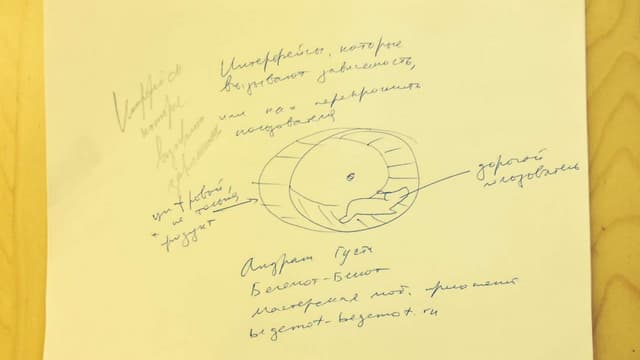 Интерфейсы, которые
вызывают зависимость,
или как перекроить
пользователя
Интерфейсы
которые
вызывают
дорогой
пользователь
цифровой
и не только
продукт
Андраш Густи
Бегемот-Бгмот
мастерская моб. приложений
begemot-begemot.ru